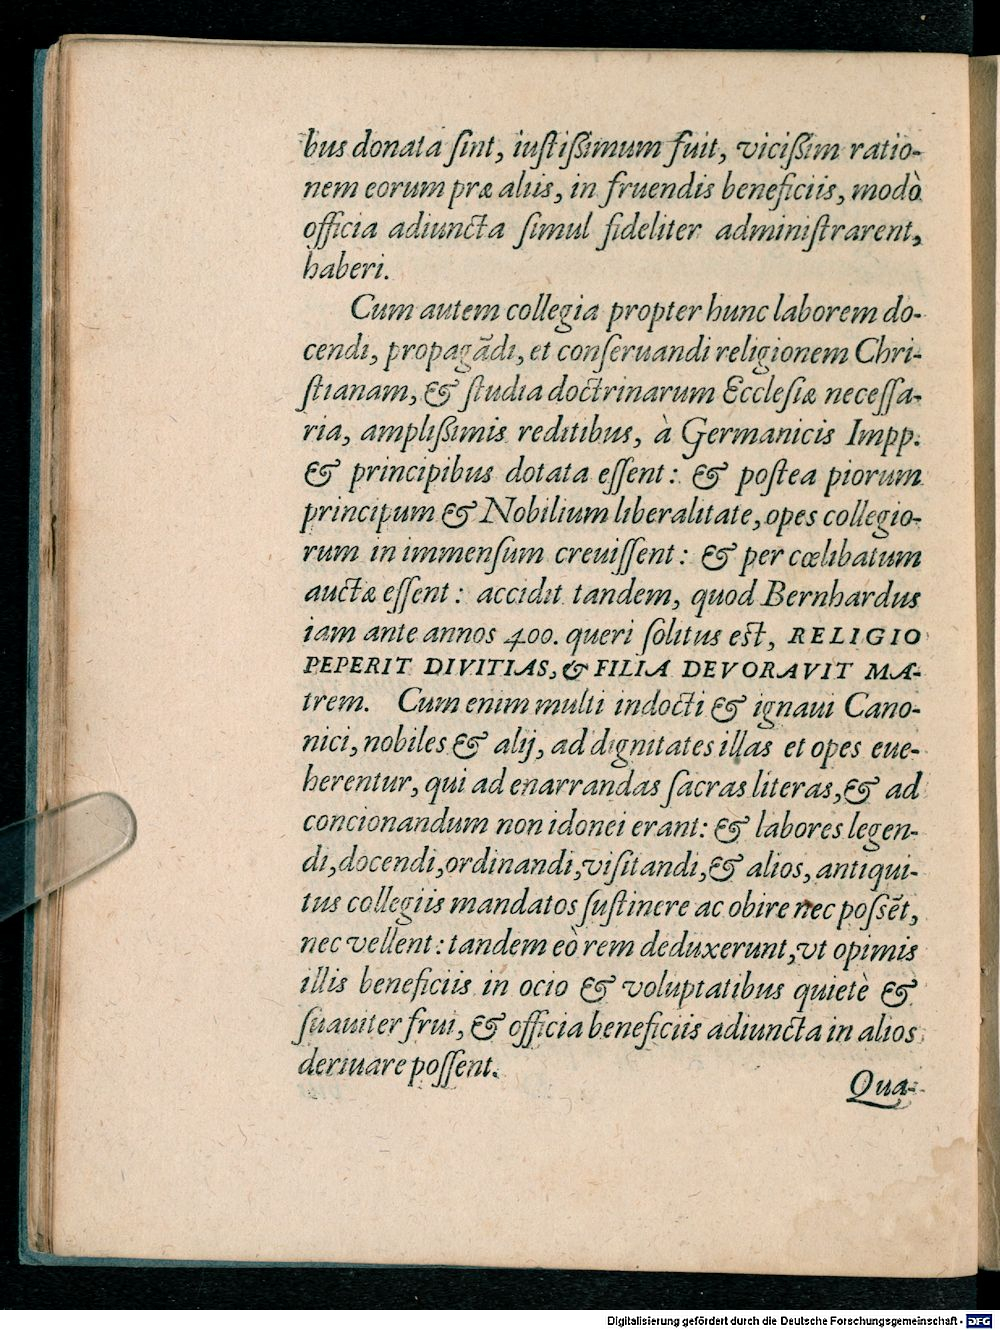 bus donata ſint, iuſtiſsimum fuit, viciſsim ratio-
nem eorum præ aliis, in fruendis beneficiis, modò
officia adiuncta ſimul fideliter adminiſtrarent,
haberi.
Cum autem collegia propter hunc laborem do-
cendi, propagādi, et conſeruandi religionem Chri-
ſtianam, & ſtudia doctrinarum Eccleſiæ neceſſa-
ria, ampliſsimis reditibus, à Germanicis Impp.
& principibus dotata eſſent: & poſtea piorum
principum & Nobilium liberalitate, opes collegio-
rum in immenſum creuiſſent: & per cœlibatum
auctæ eſſent: accidit tandem, quod Bernhardus
iam ante annos 400. queri ſolitus eſt, RELIGIO
PEPERIT DIVITIAS, & FILIA DEVORAVIT MA-
trem. Cum enim multi indocti & ignaui Cano-
nici, nobiles & alij, ad dignitates illas et opes eue-
herentur, qui ad enarrandas ſacras literas, & ad
concionandum non idonei erant: & labores legen-
di, docendi, ordinandi, viſitandi, & alios, antiqui-
tus collegiis mandatos ſuſtinere ac obire nec poſsēt,
nec vellent: tandem eò rem deduxerunt, vt opimis
illis beneficiis in ocio & voluptatibus quietè &
ſuauiter frui, & officia beneficiis adiuncta in alios
deriuare poſſent.
Qua-
Digitalisierung gefördert durch die Deutsche Forschungsgemeinschaft - DFG